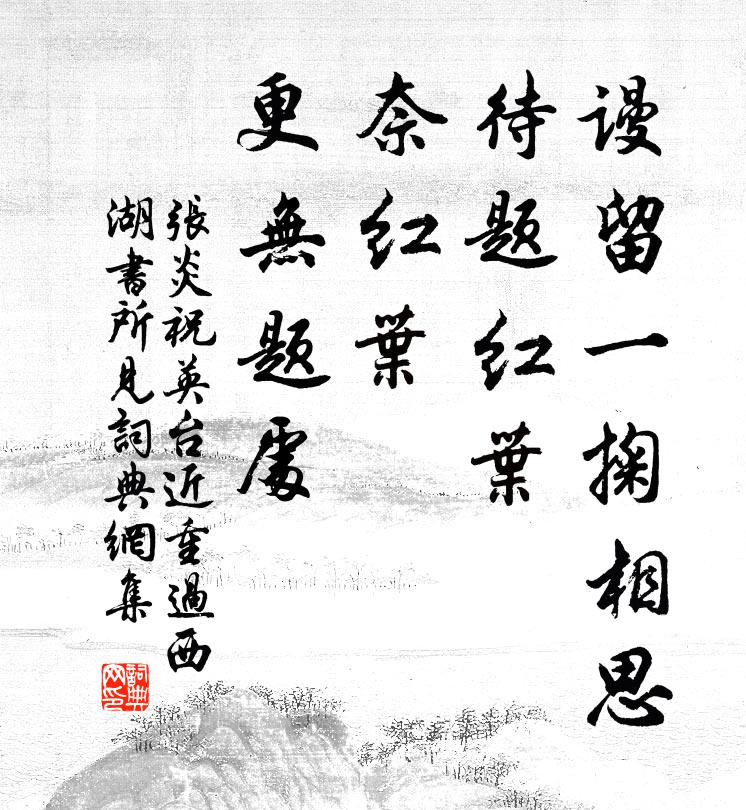 謾留一掬相思
待題紅葉
奈紅葉
更無題處
張炎祝英台近重過西
湖書所見詞典網集
詞典
网印